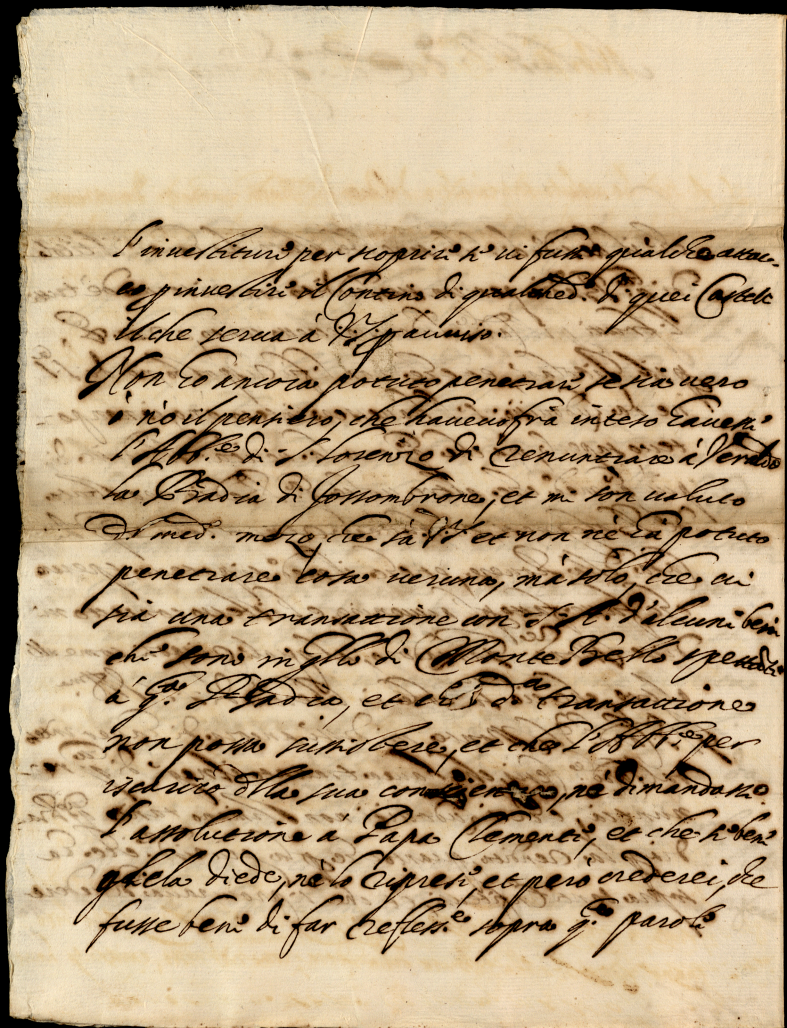 l'investiture per scoprire se vi fusse qualche attac-
co p investire il Contino di qualched.º di quei Castelli
il che serva à V.S. p avviso.
Non ho ancora potuto penetrare, se sia vero
ò nò il pensiero, che havevo frà inteso havere
l'Abb.e di S. Lorenzo di renuntiare à
la Badia di Fossombrone, et mi son valuto
del med.º mezo, che sà V.S. et non n'è hà potuto
penetrare cosa veruna, mà solo, che vi
sia una transattione con S. A. d'alcuni beni
che sono in qllo di Monte Bello spettanti
à q.ta Badia, et che d.ta transattione
non possa sussistere, et che l'Abb.e per
iscarico dlla sua conscienza, ne dimandasse
l'assolutione à Papa Clemente, et che se bene
gliela diede, ne lo riprese, et però crederei, che
fusse bene di far refless.e sopra q.te parole